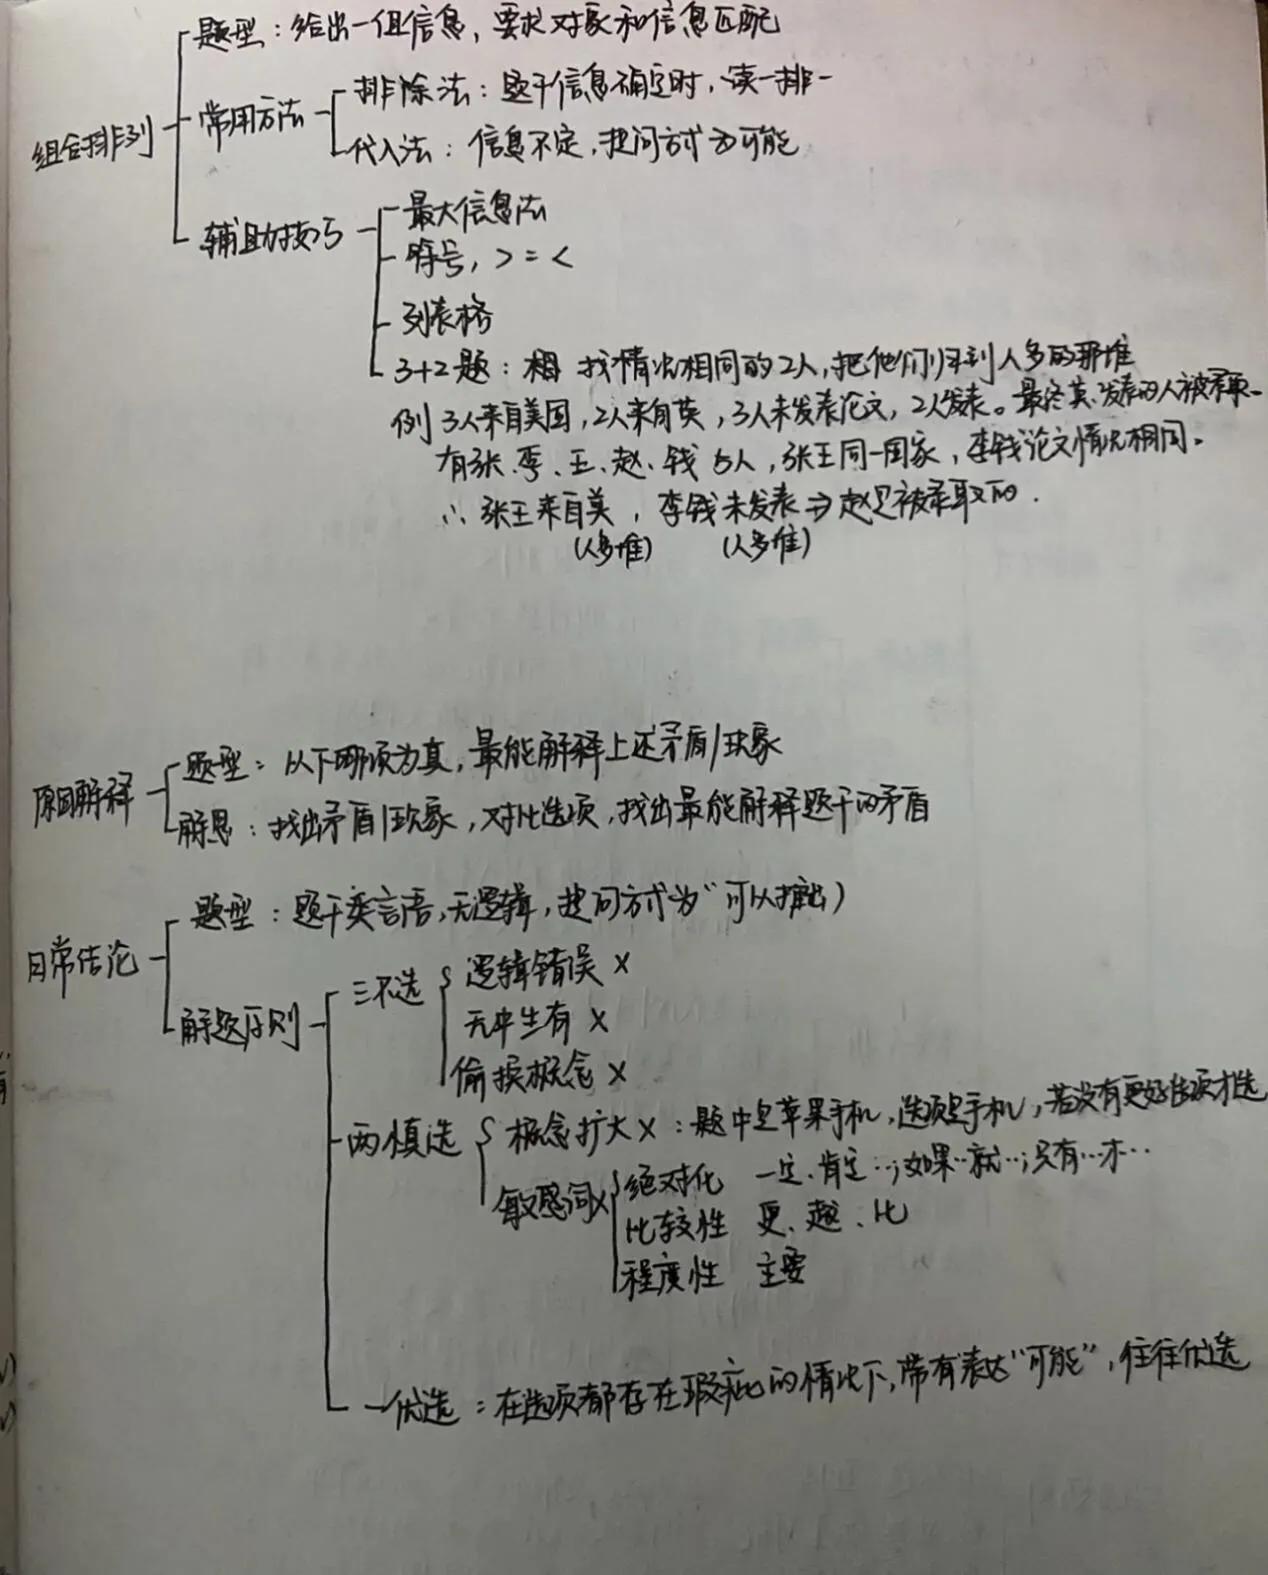 组合排列
题型：给出一组信息，要求对象和信息匹配
常用方法
排除法：题干信息确定时，读一排一
代入法：信息不定，提问方式为可能
辅助技巧
最大信息法
符号，> = <
列表格
3+2题：相 找情况相同的2人，把他们归到人多的那堆
例 3人来自美国，2人来自英，3人未发表论文，2人发表。最终英、发表的人被录取
有张、李、王、赵、钱 5人，张王同一国家，李钱论文情况相同。
∴ 张王来自美，李钱未发表⇒赵是被录取的.
(人多堆) (人多堆)
原因解释
题型：以下哪项为真，最能解释上述矛盾/现象
解思：找出矛盾/现象，对比选项，找出最能解释题干的矛盾
日常结论
题型：题干类言语，无逻辑，提问方式为“可以推出）
解题原则
三不选
逻辑错误 ×
无中生有 ×
偷换概念 ×
两慎选
概念扩大×：题中是苹果手机，选项是手机，若没有更好选项才选
敏感词×
绝对化 一定、肯定…；如果…就…；只有…才…
比较性 更、越、比
程度性 主要
一优选：在选项都存在瑕疵的情况下，带有表达“可能”，往往优选